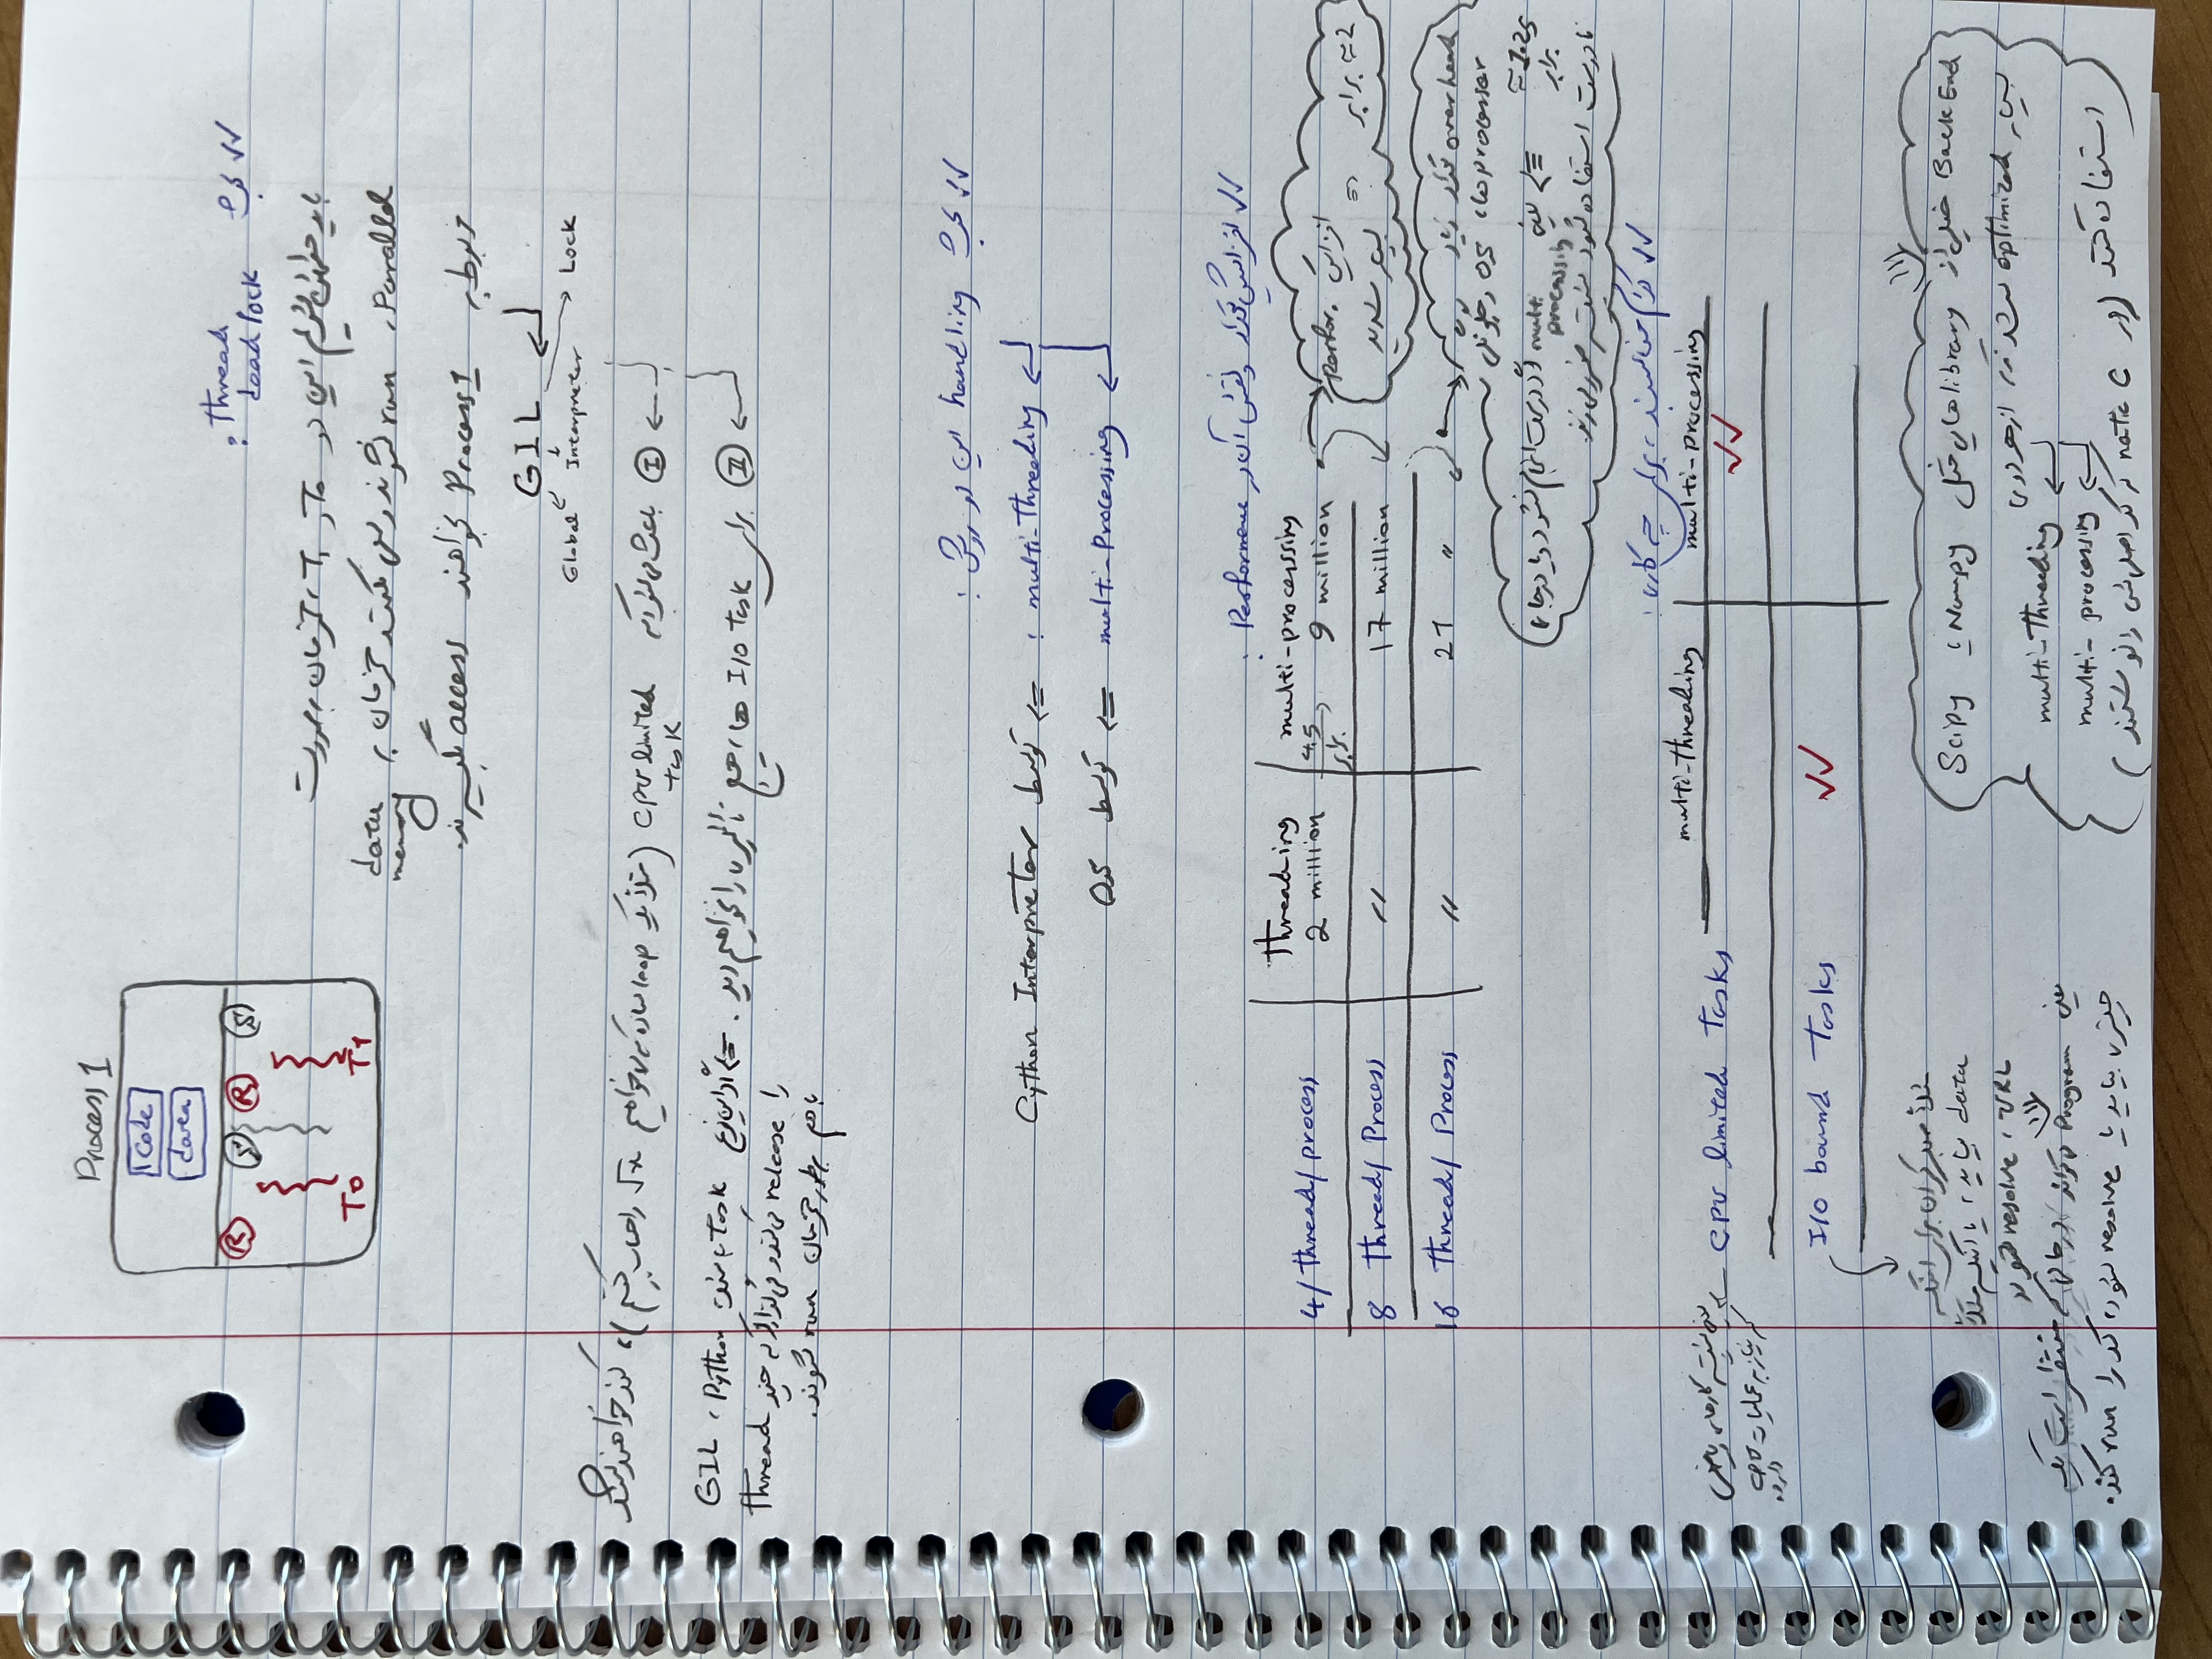 Process 1
Code
data
R S R S
T0 T1
✓✓ بحث Thread
deadlock :
باید مطمئن شویم این دو T0 و T1، همزمان بصورت
Parallel، run نشوند و سعی نکنند همزمان به data
memory
مربوط به Process1 بخواهند access بگیرند.
GIL
Global Interpreter Lock
I باعث می‌شود که CPU limited (مثلاً یک loop ساده که می‌خواهیم √x را حساب کنیم)، کند خواهند شد
task
II برای I/O task ها، هیچ تاثیری را نخواهیم دید. ⇐ اگر این نوع task باشند، Python، GIL
را release می‌کند و می‌گذارد که چند Thread
با هم بطور همزمان run شوند.
✓✓ بحث handling این دو روش :
multi-Threading : ⇐ توسط Cython Interpreter
multi-Processing ⇐ توسط OS
✓✓ افزایش تعداد و نقش آن در Performence :
Threading multi-processing
4/ Thread/ process 2 million 4.5 برابر 9 million
8 Thread/ Process 〃 17 million
16 Thread/ Process 〃 21 〃
افزایش perfor.
≈2 برابر ⇒ بسیار شدید
overhead تعداد زیاد
processer ها، OS و چگونگی
≈1.25 برابر ⇐ یعنی multi processing اگر درست انجام نشود و یا در جای
نادرست استفاده شود بیشتر ضرر می‌زند.
✓✓ کدام مناسبند، برای چه کاری :
multi-threading multi-processing
CPU limited Tasks ✓✓
یعنی بیشتر کارهای ریاضی
که نیاز به عملیات CPU
دارد.
I/O bound Tasks ✓✓
مثلاً صبر کردن برای اینکه
data بیاید، یا اینکه مثلاً
URL، resolve شود
یعنی Program می‌تواند در حالی که منتظر است یک
چیزی بیاید یا resolve شود، کد را run کند.
BackEnd خیلی از library هایی مثل Numpy یا Scipy
بسیار optimized شده که از هر دوی
multi-Threading
multi-processing
استفاده کنند (در native C که کد اصلی‌اش را نوشتند)